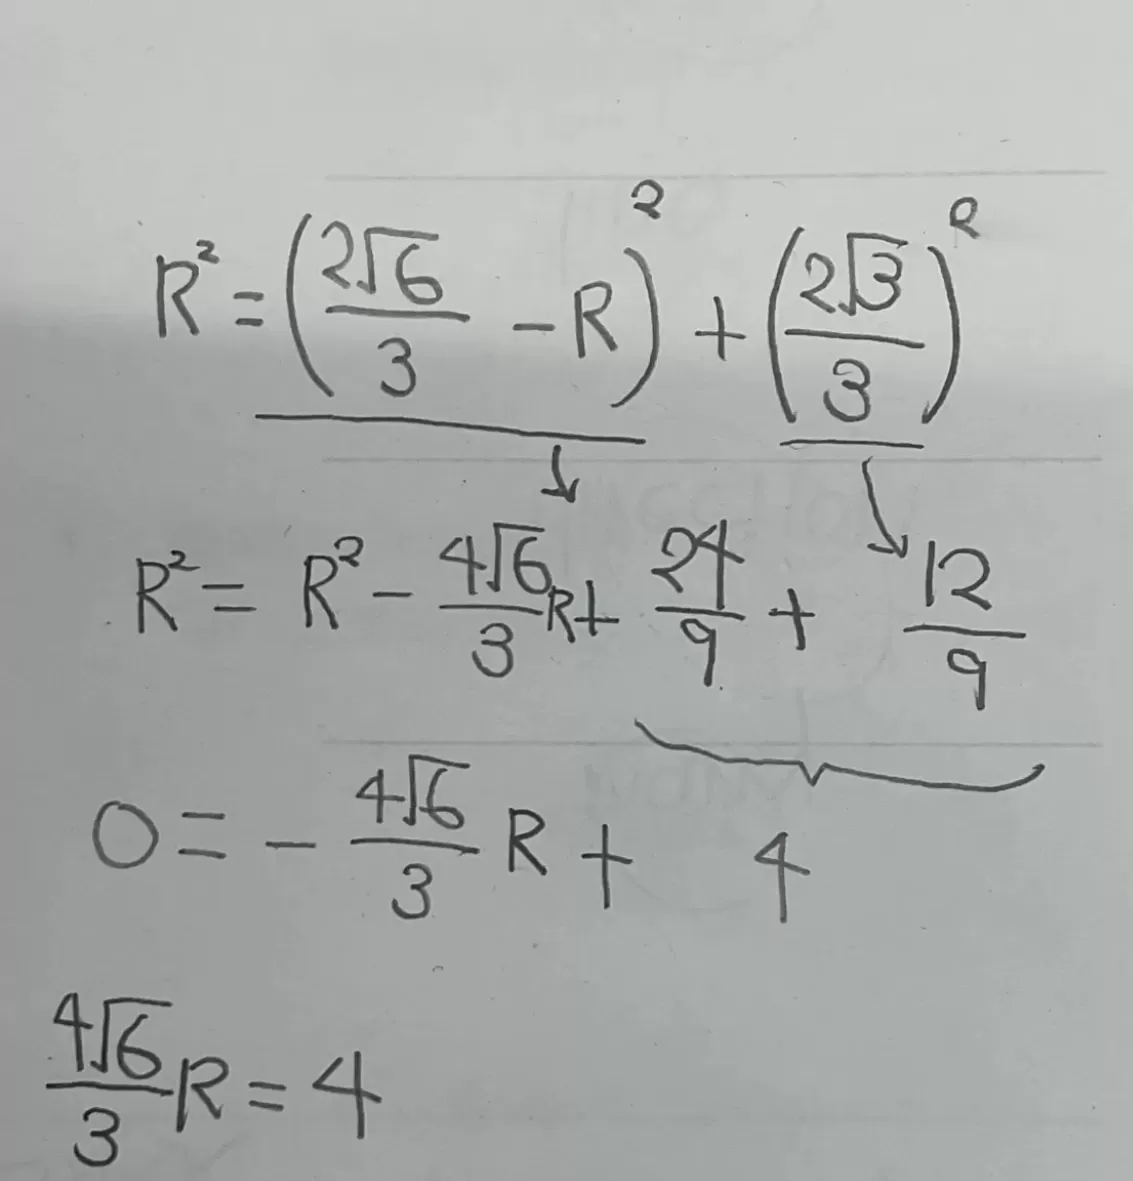 R² = (2√6/3 - R)² + (2√3/3)²
R² = R² - 4√6/3 R + 24/9 + 12/9
0 = - 4√6/3 R + 4
4√6/3 R = 4